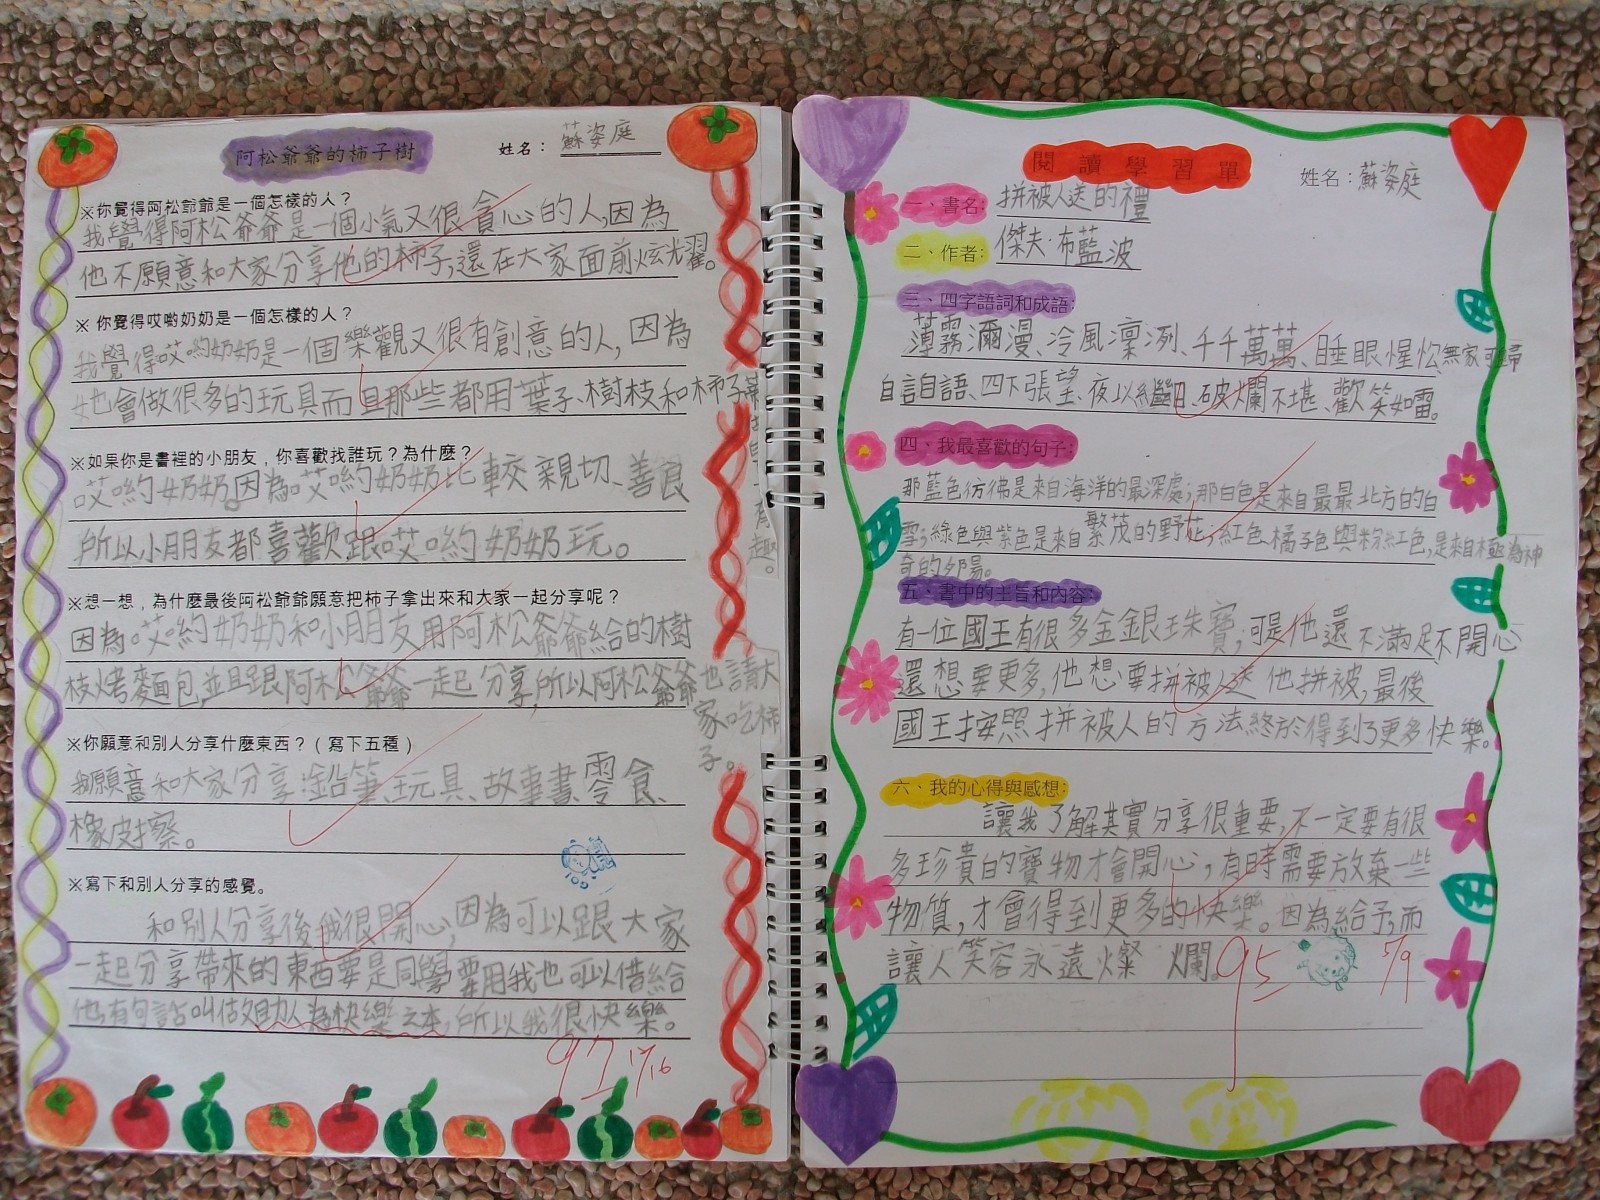 阿松爺爺的柿子樹
姓名：蘇姿庭
※你覺得阿松爺爺是一個怎樣的人？
我覺得阿松爺爺是一個小氣又很貪心的人,因為
他不願意和大家分享他的柿子,還在大家面前炫光耀。
※ 你覺得哎喲奶奶是一個怎樣的人？
我覺得哎喲奶奶是一個樂觀又很有創意的人,因為
她會做很多的玩具而且那些都用葉子、樹枝和柿子蒂
有趣。
※如果你是書裡的小朋友，你喜歡找誰玩？為什麼？
哎喲奶奶。因為哎喲奶奶比較親切、善良
所以小朋友都喜歡跟哎喲奶奶玩。
※想一想，為什麼最後阿松爺爺願意把柿子拿出來和大家一起分享呢？
因為哎喲奶奶和小朋友用阿松爺爺給的樹
枝烤麵包,並且跟阿松爺爺一起分享,所以阿松爺爺也請大
家吃柿
子。
※你願意和別人分享什麼東西？（寫下五種）
我願意和大家分享:鉛筆、玩具、故事書、零食、
橡皮擦。
※寫下和別人分享的感覺。
和別人分享後我很開心,因為可以跟大家
一起分享帶來的東西要是同學要用我也可以借給
他,有句話叫做助人為快樂之本,所以我很快樂。
97 12/16
閱讀學習單
姓名：蘇姿庭
一、書名: 拼被人送的禮
二、作者: 傑夫·布藍波
三、四字語詞和成語:
薄霧瀰漫、冷風凜冽、千千萬萬、睡眼惺忪無家可歸
自言自語、四下張望、夜以繼日、破爛不堪、歡笑如雷。
四、我最喜歡的句子:
那藍色彷彿是來自海洋的最深處;那白色是來自最最北方的白
雪;綠色與紫色是來自繁茂的野花;紅色、橘子色與粉紅色,是來自極為神
奇的夕陽。
五、書中的主旨和內容:
有一位國王有很多金銀珠寶;可是他還不滿足不開心
還想要更多,他想要拼被人送他拼被,最後
國王按照拼被人的方法終於得到了更多快樂。
六、我的心得與感想:
讓我了解其實分享很重要,不一定要有很
多珍貴的寶物才會開心,有時需要放棄一些
物質,才會得到更多的快樂。因為給予,而
讓人笑容永遠燦爛。
95 5/9